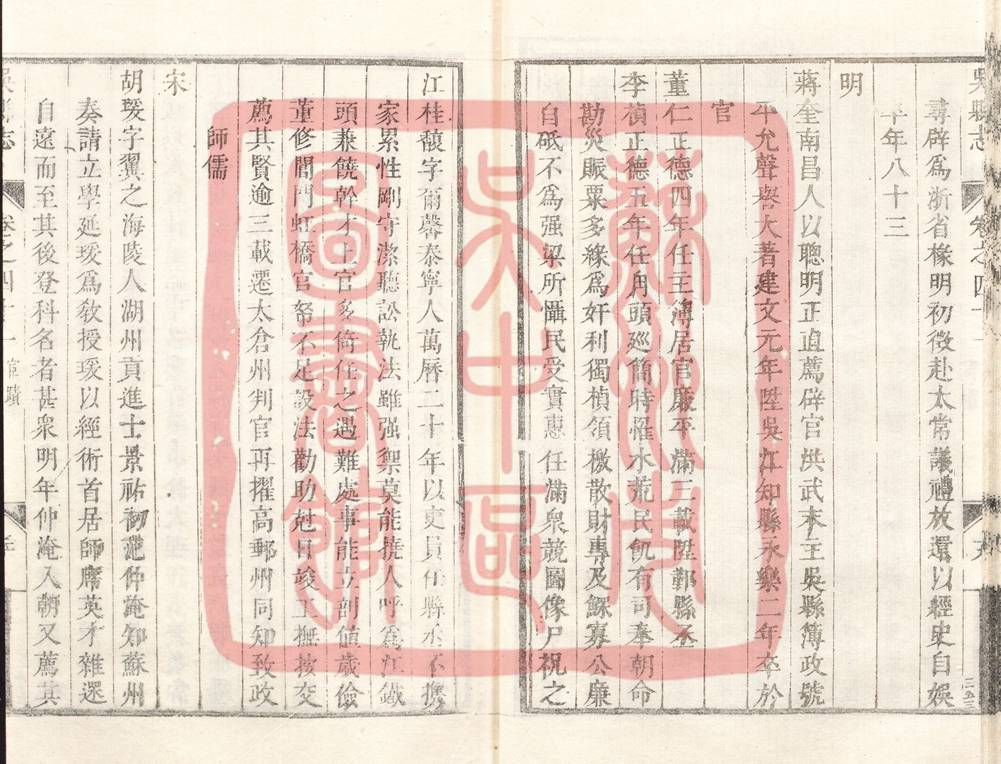 吳縣志 卷之四十
尋辟爲浙省掾明初徵赴太常議禮放還以經史自娛
年八十三
明
蔣奎南昌人以聰明正直薦辟官洪武末主吳縣簿政號
平允聲譽大著建文元年陞吳江知縣永樂二年卒於
官
董仁正德四年任主簿居官廉平滿三載陞鄞縣丞
李楨正德五年任甪頭廵簡時罹水荒民飢有司奉朝命
勘災賑粟多緣爲奸利獨楨領檄散財專及鰥寡公廉
自砥不爲强梁所懾民受實惠任滿衆競圖像尸祝之
江桂馥字爾馨泰寧人萬曆二十年以吏員任縣丞不攜
家累性剛守潔聽訟執法雖强禦莫能撓人呼爲江鐵
頭兼饒幹才上官多倚任之遇難處事能立剖値歲儉
董修閶門虹橋官帑不足設法勸助尅日竣工撫按交
薦其賢逾三載遷太倉州判官再擢高郵州同知致政
師儒
宋
胡瑗字翼之海陵人湖州貢進士景祐初范仲淹知蘇州
奏請立學延瑗爲敎授瑗以經術首居師席英才雜遝
自遠而至其後登科名者甚衆明年仲淹入朝又薦其
吳縣志 卷之四十一
蘇州市
吳中區
圖書館